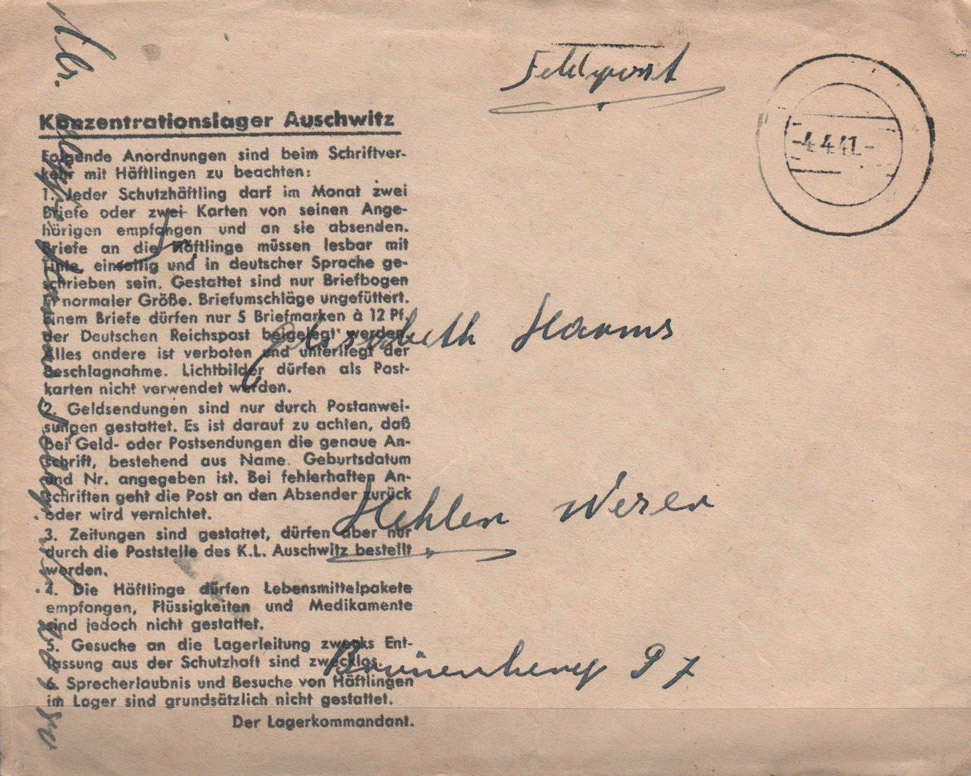 Feldpost
4.4.41.-
Konzentrationslager Auschwitz
Folgende Anordnungen sind beim Schriftver-
kehr mit Häftlingen zu beachten:
1. Jeder Schutzhäftling darf im Monat zwei
Briefe oder zwei Karten von seinen Ange-
hörigen empfangen und an sie absenden.
Briefe an die Häftlinge müssen lesbar mit
Tinte, einseitig und in deutscher Sprache ge-
schrieben sein. Gestattet sind nur Briefbogen
in normaler Größe. Briefumschläge ungefüttert.
Einem Briefe dürfen nur 5 Briefmarken à 12 Pf.
der Deutschen Reichspost beigelegt werden.
Alles andere ist verboten und unterliegt der
Beschlagnahme. Lichtbilder dürfen als Post-
karten nicht verwendet werden.
2. Geldsendungen sind nur durch Postanwei-
sungen gestattet. Es ist darauf zu achten, daß
bei Geld- oder Postsendungen die genaue An-
schrift, bestehend aus Name. Geburtsdatum
und Nr. angegeben ist. Bei fehlerhaften An-
schriften geht die Post an den Absender zurück
oder wird vernichtet.
3. Zeitungen sind gestattet, dürfen aber nur
durch die Poststelle des K.L. Auschwitz bestellt
werden.
4. Die Häftlinge dürfen Lebensmittelpakete
empfangen, Flüssigkeiten und Medikamente
sind jedoch nicht gestattet.
5. Gesuche an die Lagerleitung zwecks Ent-
lassung aus der Schutzhaft sind zwecklos.
6. Sprecherlaubnis und Besuche von Häftlingen
im Lager sind grundsätzlich nicht gestattet.
Der Lagerkommandant.
Elisabeth Harms
Hehlen Weser
Brünenberg 97